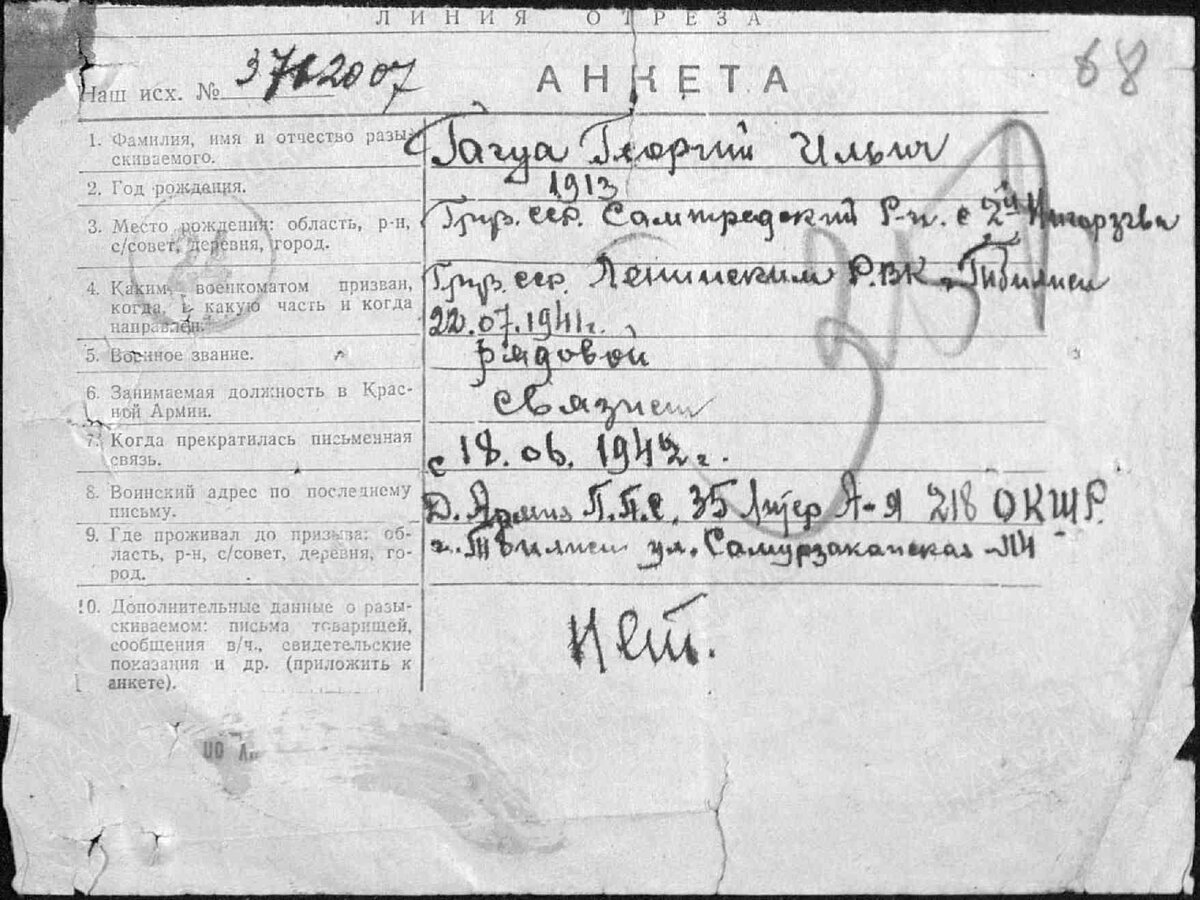 ЛИНИЯ ОТРЕЗА
68
Наш исх. №
АНКЕТА
1. Фамилия, имя и отчество разы-
скиваемого.
Гагуа Георгий Ильич
2. Год рождения.
1913
3. Место рождения: область, р-н,
с/совет, деревня, город.
Груз. сср. Самтредский Р-н. с 2й
4. Каким военкоматом призван,
когда, в какую часть и когда
направлен.
Груз. сср. Ленинским Р.ВК г. Тибилиси
22.07.1941г.
5. Военное звание.
рядовой
6. Занимаемая должность в Крас-
ной Армии.
Связист
7. Когда прекратилась письменная
связь.
с 18. 06. 1942 г.
8. Воинский адрес по последнему
письму.
Д. Армия П.П.С. 35 Литер А-я 218 ОКШР.
9. Где проживал до призыва: об-
ласть, р-н, с/совет, деревня, го-
род.
г. Тбилиси ул. Самурзаканская
10. Дополнительные данные о разы-
скиваемом: письма товарищей,
сообщения в/ч., свидетельские
показания и др. (приложить к
анкете).
Нет.